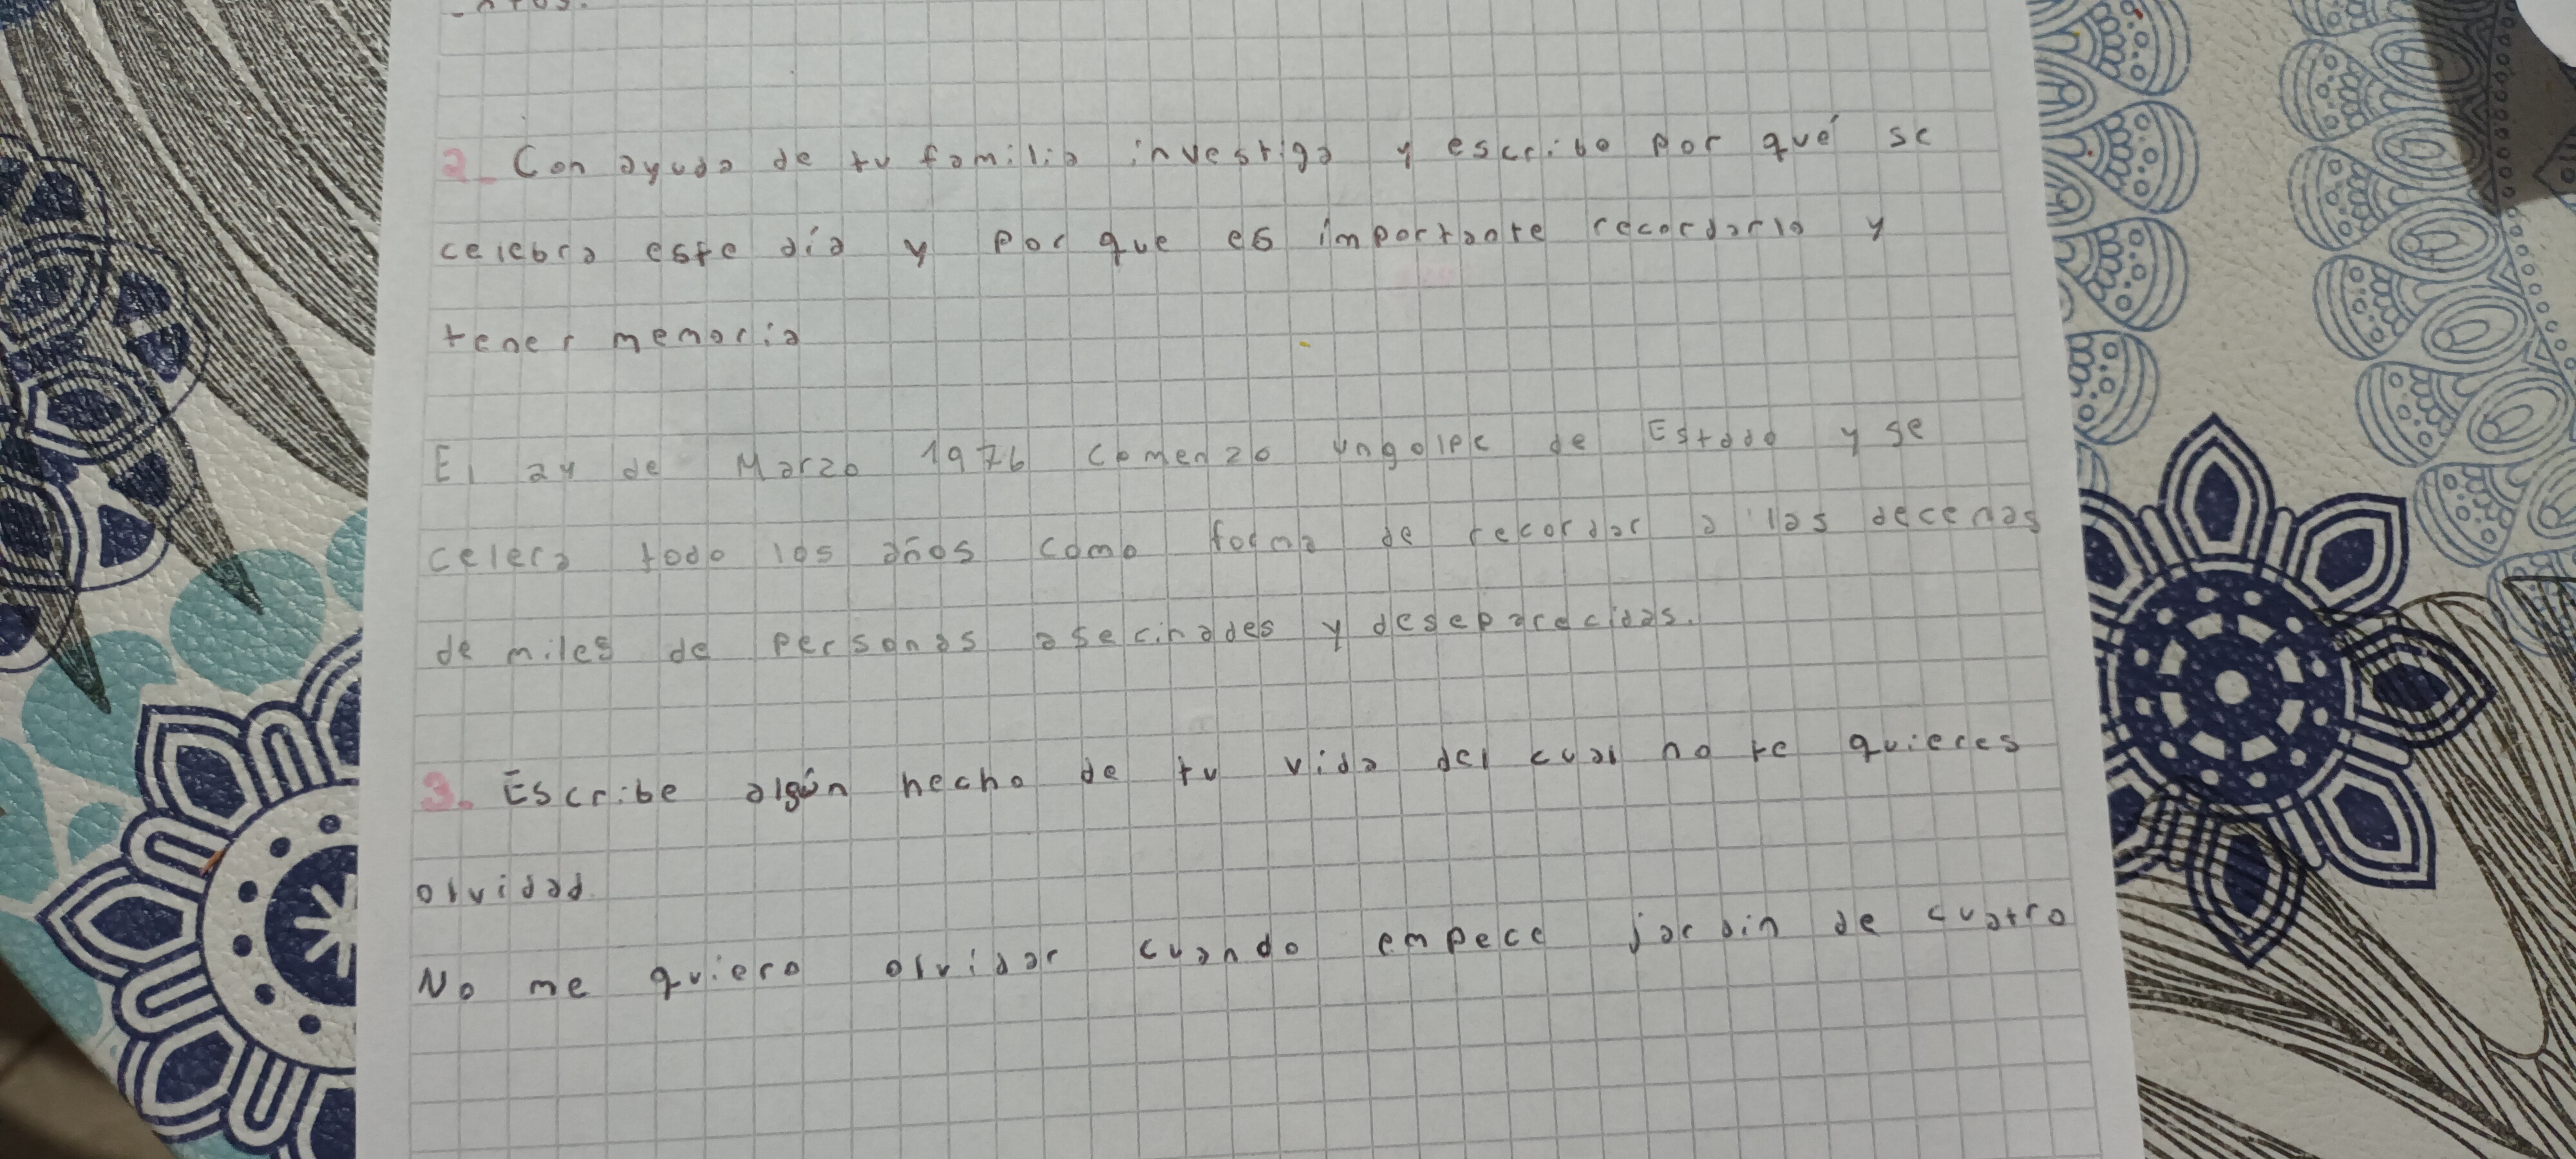 2_ Con ayuda de tu familia investiga y escribe por qué se
celebra este día y por que es importante recordarlo y
tener memoria
El 24 de Marzo 1976 comenzo ungolpe de Estado y se
celera todo los años como forma de recordar a las decenas
de miles de personas asecinades y deseparecidas.
3. Escribe algún hecho de tu vida del cual no te quieres
olvidad
No me quiero olvidar cuando empece jardin de cuatro